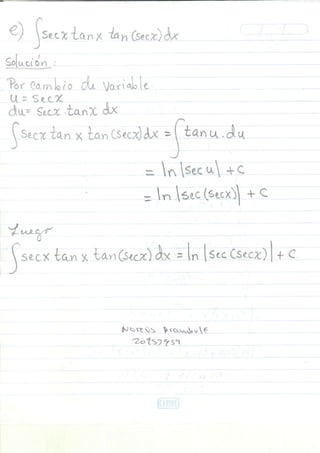 e) ∫secx tanx tan(secx)dx
Solución:
Por cambio de variable
u = secx
du = secx tanx dx
∫secx tan x tan(secx)dx = ∫tanu.du
= ln|secu| + c
= ln|sec(secx)| + c
Luego
∫secx tan x tan(secx)dx = ln|sec(secx)| + c